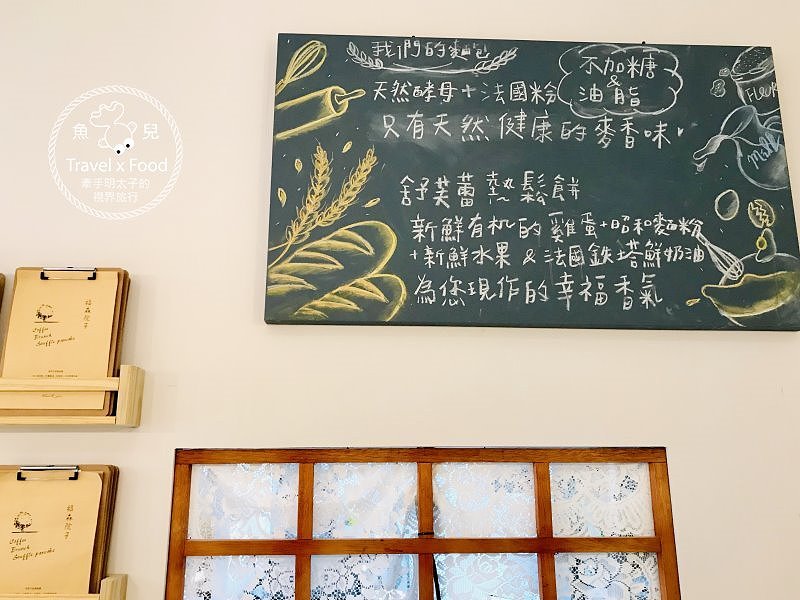 我們的麵包
天然酵母+法國粉
不加糖
&
油脂
只有天然健康的麥香味
舒芙蕾熱鬆餅
新鮮有机的雞蛋+昭和麵粉
+新鮮水果 & 法國鉄塔鮮奶油
為您現作的幸福香氣
FLOUR
Milk
魚 兒
Travel x Food
牽手明太子的
視界旅行
福森院子
Coffee
Brunch
Souffle pancake
福森院子
Coffee
Brunch
Souffle pancake